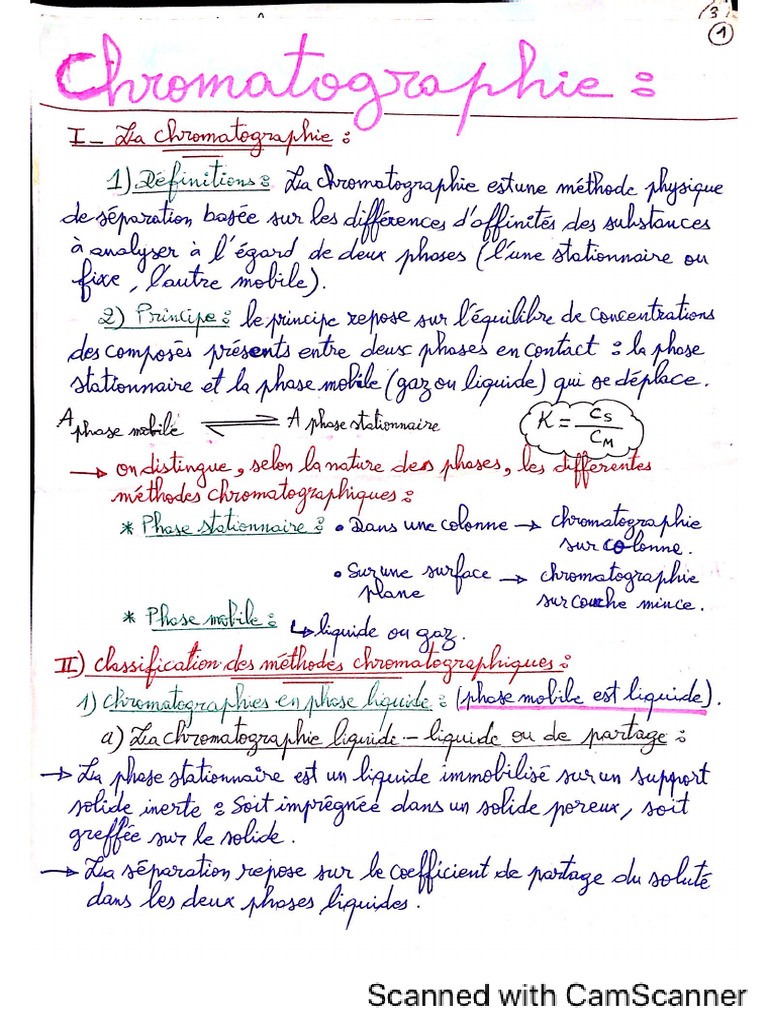 1
Chromatographie :
I - La chromatographie :
1) Définitions : La chromatographie est une méthode physique
de séparation basée sur les différences d'affinités des substances
à analyser à l'égard de deux phases (l'une stationnaire ou
fixe, l'autre mobile).
2) Principe : le principe repose sur l'équilibre de concentrations
des composés présents entre deux phases en contact : la phase
stationnaire et la phase mobile (gaz ou liquide) qui se déplace.
A phase mobile ⇌ A phase stationnaire K = CS / CM
→ on distingue, selon la nature des phases, les différentes
méthodes chromatographiques :
* Phase stationnaire : • Dans une colonne → chromatographie
sur colonne.
• Sur une surface → chromatographie
plane sur couche mince.
* Phase mobile : ↳ liquide ou gaz.
II) classification des méthodes chromatographiques :
1) chromatographies en phase liquide : (phase mobile est liquide).
a) La chromatographie liquide - liquide ou de partage :
→ La phase stationnaire est un liquide immobilisé sur un support
solide inerte : Soit imprégnée dans un solide poreux, soit
greffée sur le solide.
→ La séparation repose sur le coefficient de partage du soluté
dans les deux phases liquides.
Scanned with CamScanner